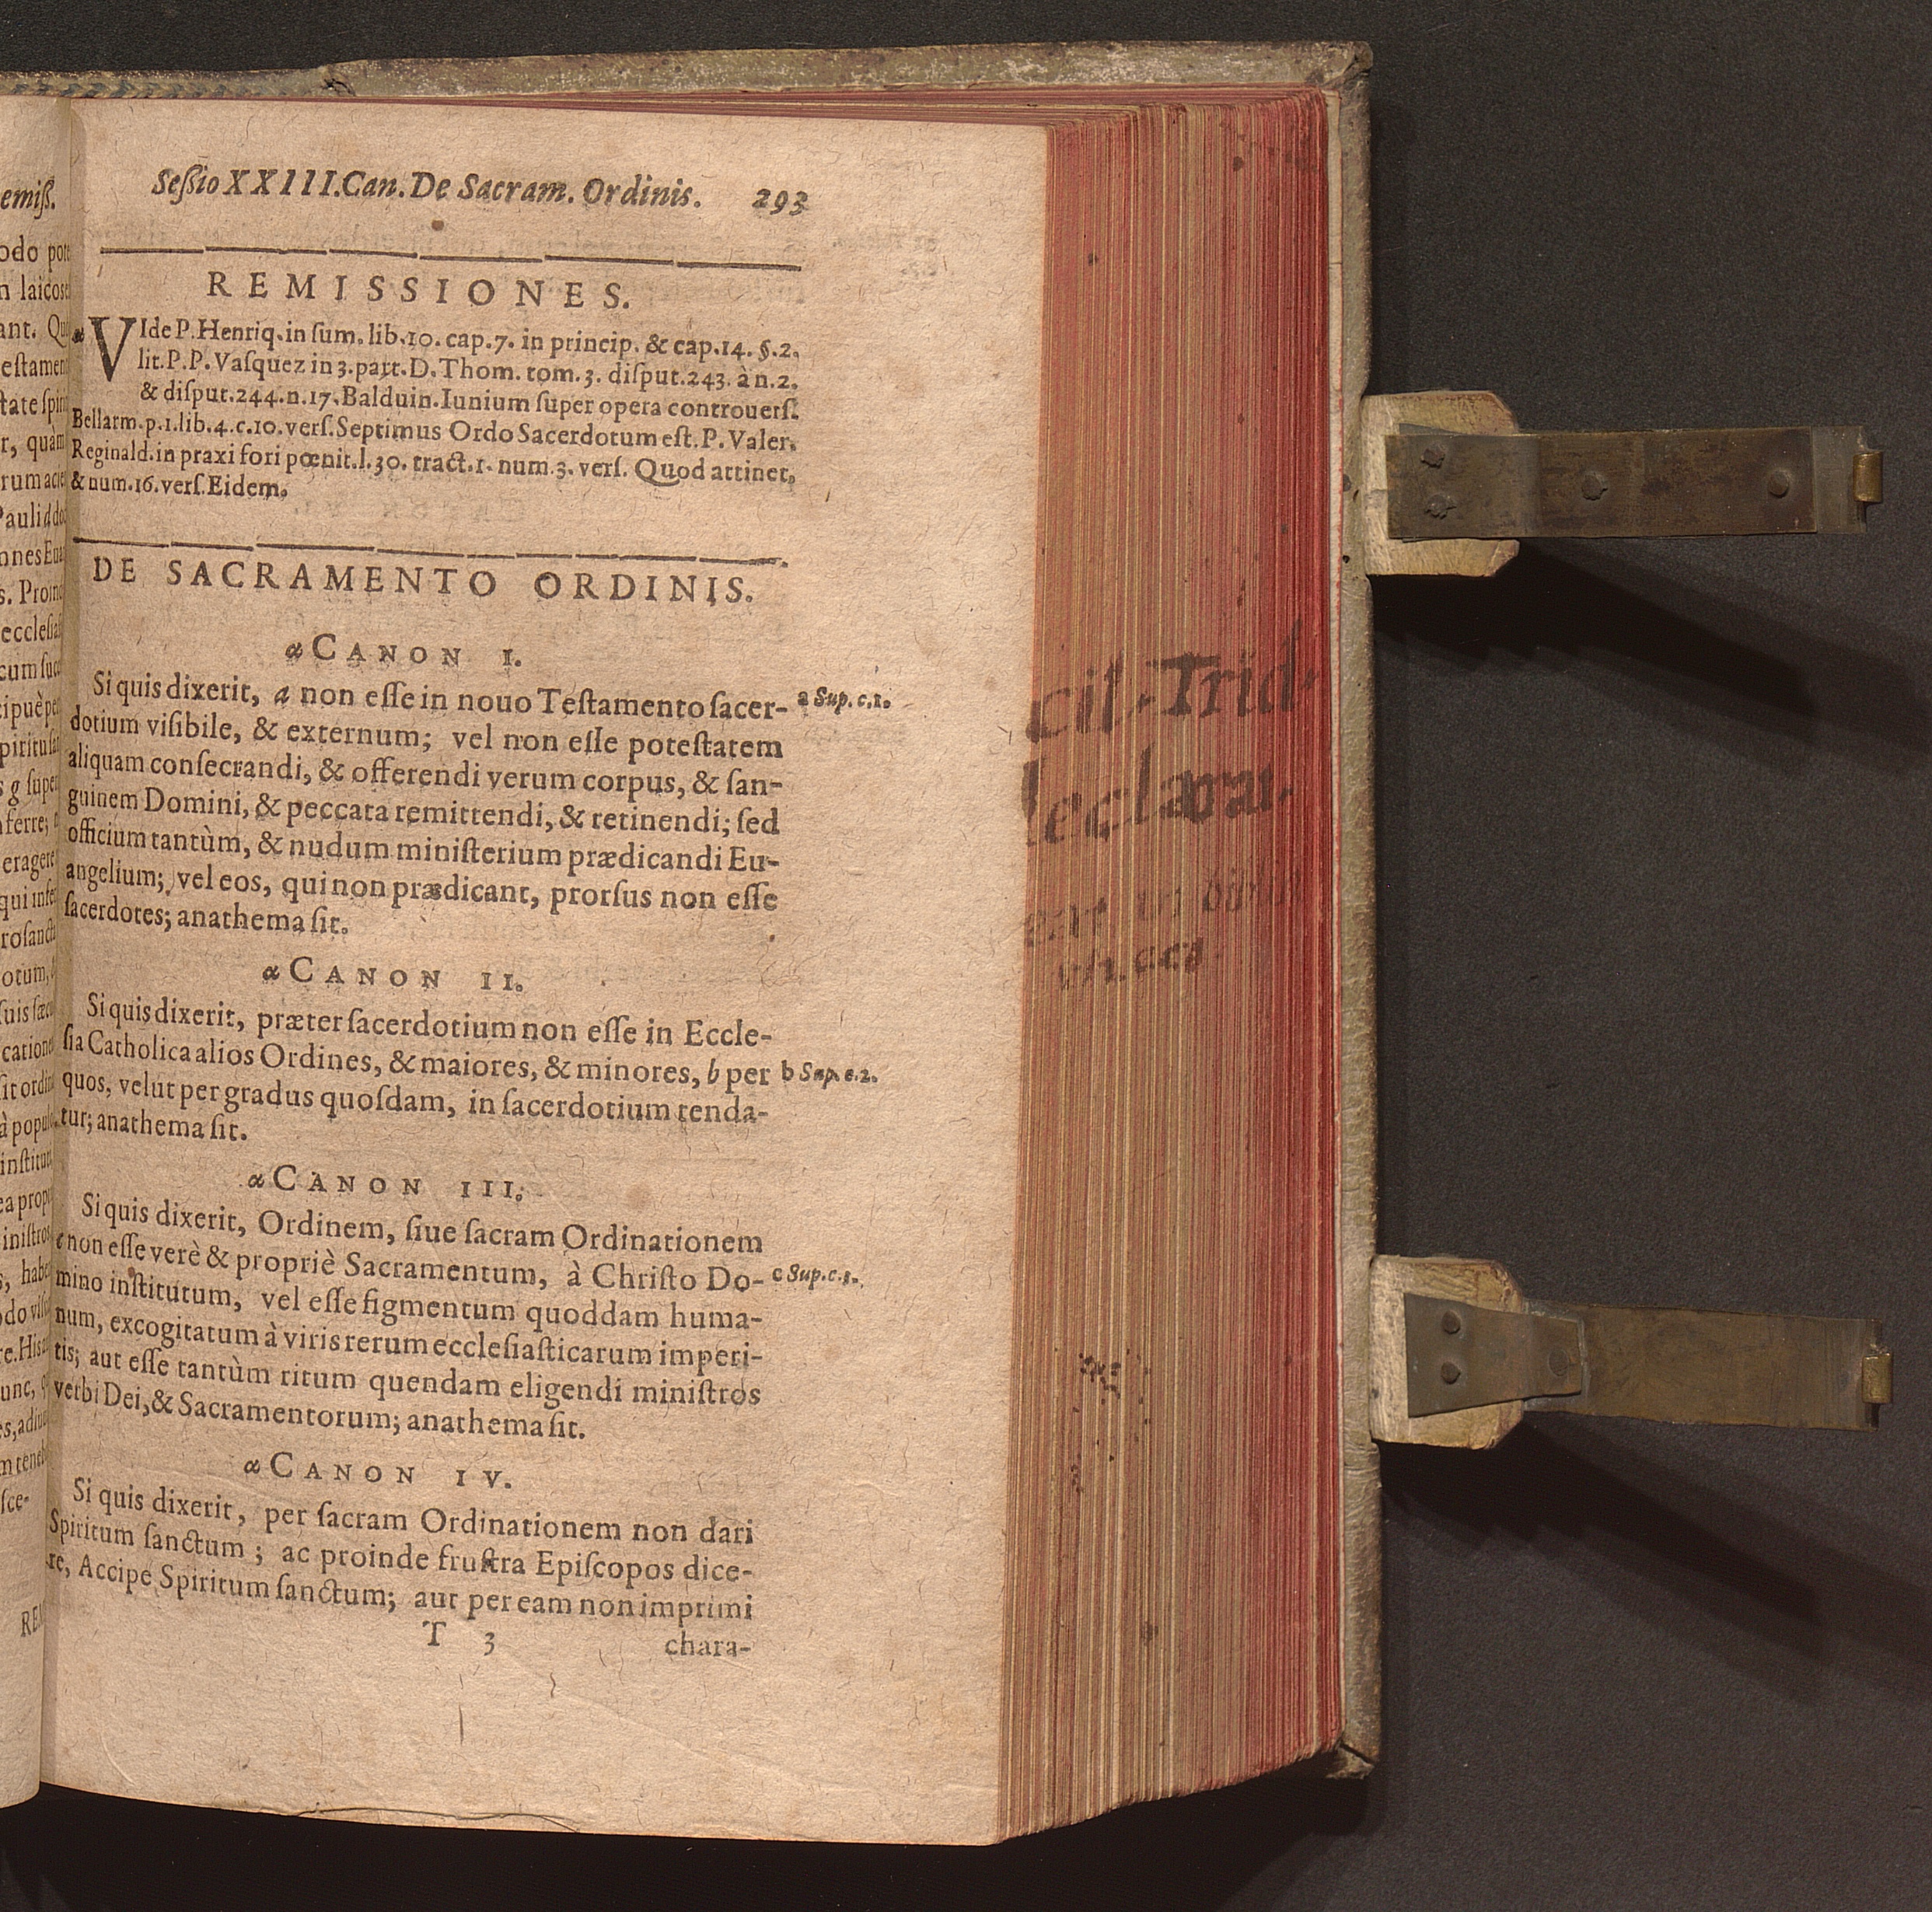 Seßio XXIII. Can. De Sacram. Ordinis. 293
REMISSIONES.
α VIde P. Henriq. in ſum. lib. 10. cap. 7. in princip. & cap. 14. §. 2.
lit. P. P. Vaſquez in 3. part. D. Thom. tom. 3. diſput. 243. à n. 2.
& diſput. 244. n. 17. Balduin. Iunium ſuper opera controuerſ.
Bellarm. p. 1. lib. 4. c. 10. verſ. Septimus Ordo Sacerdotum eſt. P. Valer.
Reginald. in praxi fori pœnit. l. 30. tract. 1. num. 3. verſ. Quod attinet,
& num. 16. verſ. Eidem.
DE SACRAMENTO ORDINIS.
α CANON I.
Si quis dixerit, a non eſſe in nouo Teſtamento ſacer- a Sup. c. 1.
dotium viſibile, & externum; vel non eſſe poteſtatem
aliquam conſecrandi, & offerendi verum corpus, & ſan-
guinem Domini, & peccata remittendi, & retinendi; ſed
officium tantùm, & nudum miniſterium prædicandi Eu-
angelium; vel eos, qui non prædicant, prorſus non eſſe
ſacerdotes; anathema ſit.
α CANON II.
Si quis dixerit, præter ſacerdotium non eſſe in Eccle-
ſia Catholica alios Ordines, & maiores, & minores, b per b Sup. c. 2.
quos, velut per gradus quoſdam, in ſacerdotium tenda-
tur; anathema ſit.
α CANON III.
Si quis dixerit, Ordinem, ſiue ſacram Ordinationem
c non eſſe verè & propriè Sacramentum, à Chriſto Do- c Sup. c. 1.
mino inſtitutum, vel eſſe figmentum quoddam huma-
num, excogitatum à viris rerum eccleſiaſticarum imperi-
tis; aut eſſe tantùm ritum quendam eligendi miniſtros
verbi Dei, & Sacramentorum; anathema ſit.
α CANON IV.
Si quis dixerit, per ſacram Ordinationem non dari
Spiritum ſanctum; ac proinde fruſtra Epiſcopos dice-
re, Accipe Spiritum ſanctum; aut per eam non imprimi
T 3 chara-
cil. Trid.